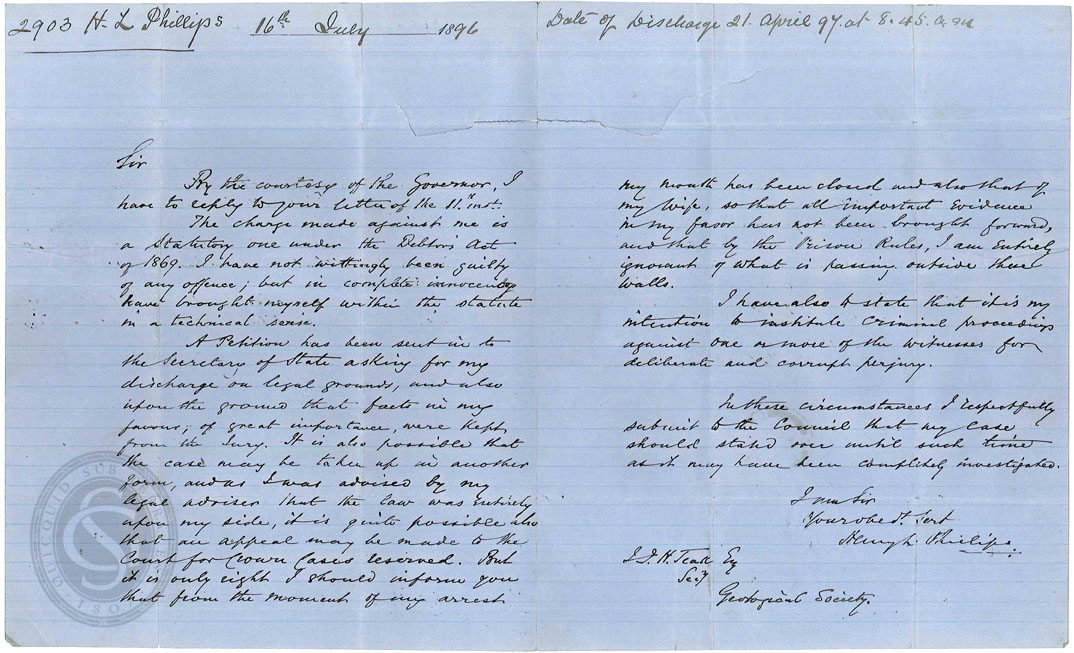 2903 H. L Phillips 16th July 1896 Date of Discharge 21. April 97 at 8.45. a.m
Sir
By the courtesy of the Governor, I
have to reply to your letter of the 11th inst.
The charge made against me is
a Statutory one under the Debtors Act
of 1869. I have not wittingly been guilty
of any offence; but in complete innocence
have brought myself within the statute
in a technical sense.
A Petition has been sent in to
the Secretary of State asking for my
discharge on legal grounds, and also
upon the ground that facts in my
favour, of great importance, were kept
from the Jury. It is also possible that
the case may be taken up in another
form, and as I was advised by my
legal adviser that the law was entirely
upon my side, it is quite possible also
that an appeal may be made to the
Court for Crown Cases reserved. But
it is only right I should inform you
that from the moment of my arrest
my mouth has been closed and also that of
my wife, so that all important evidence
in my favor has not been brought forward,
and that by the Prison Rules, I am entirely
ignorant of what is passing outside these
walls.
I have also to state that it is my
intention to institute criminal proceedings
against one or more of the witnesses for
deliberate and corrupt perjury.
In these circumstances I respectfully
submit to the Council that my case
should stand over until such time
as it may have been completely investigated.
I am Sir
Your obedt. Sert
Hengh. Phillips.
J. J. H. Teall Esq
Secy
Geological Society.
QUICQUID SUB
GS
180